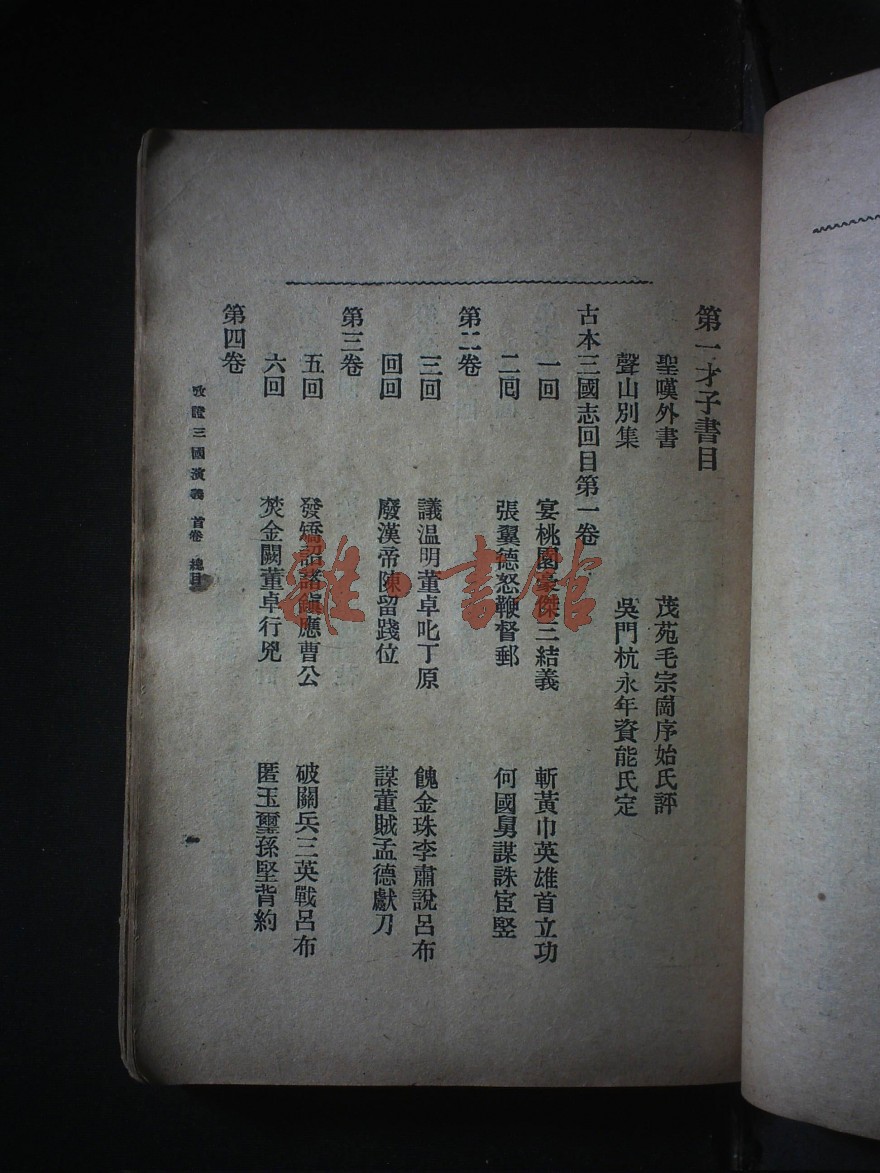 第一才子書目
聖嘆外書 茂苑毛宗崗序始氏評
聲山別集 吳門杭永年資能氏定
古本三國志回目第一卷
一回 宴桃園豪傑三結義 斬黃巾英雄首立功
二回 張翼德怒鞭督郵 何國舅謀誅宦豎
第二卷
三回 議温明董卓叱丁原 餽金珠李肅說呂布
回回 廢漢帝陳留踐位 謀董賊孟德獻刀
第三卷
五回 發矯詔諸鎮應曹公 破關兵三英戰呂布
六回 焚金闕董卓行兇 匿玉璽孫堅背約
第四卷
攷證三國演義 首卷 總目
雜·書館